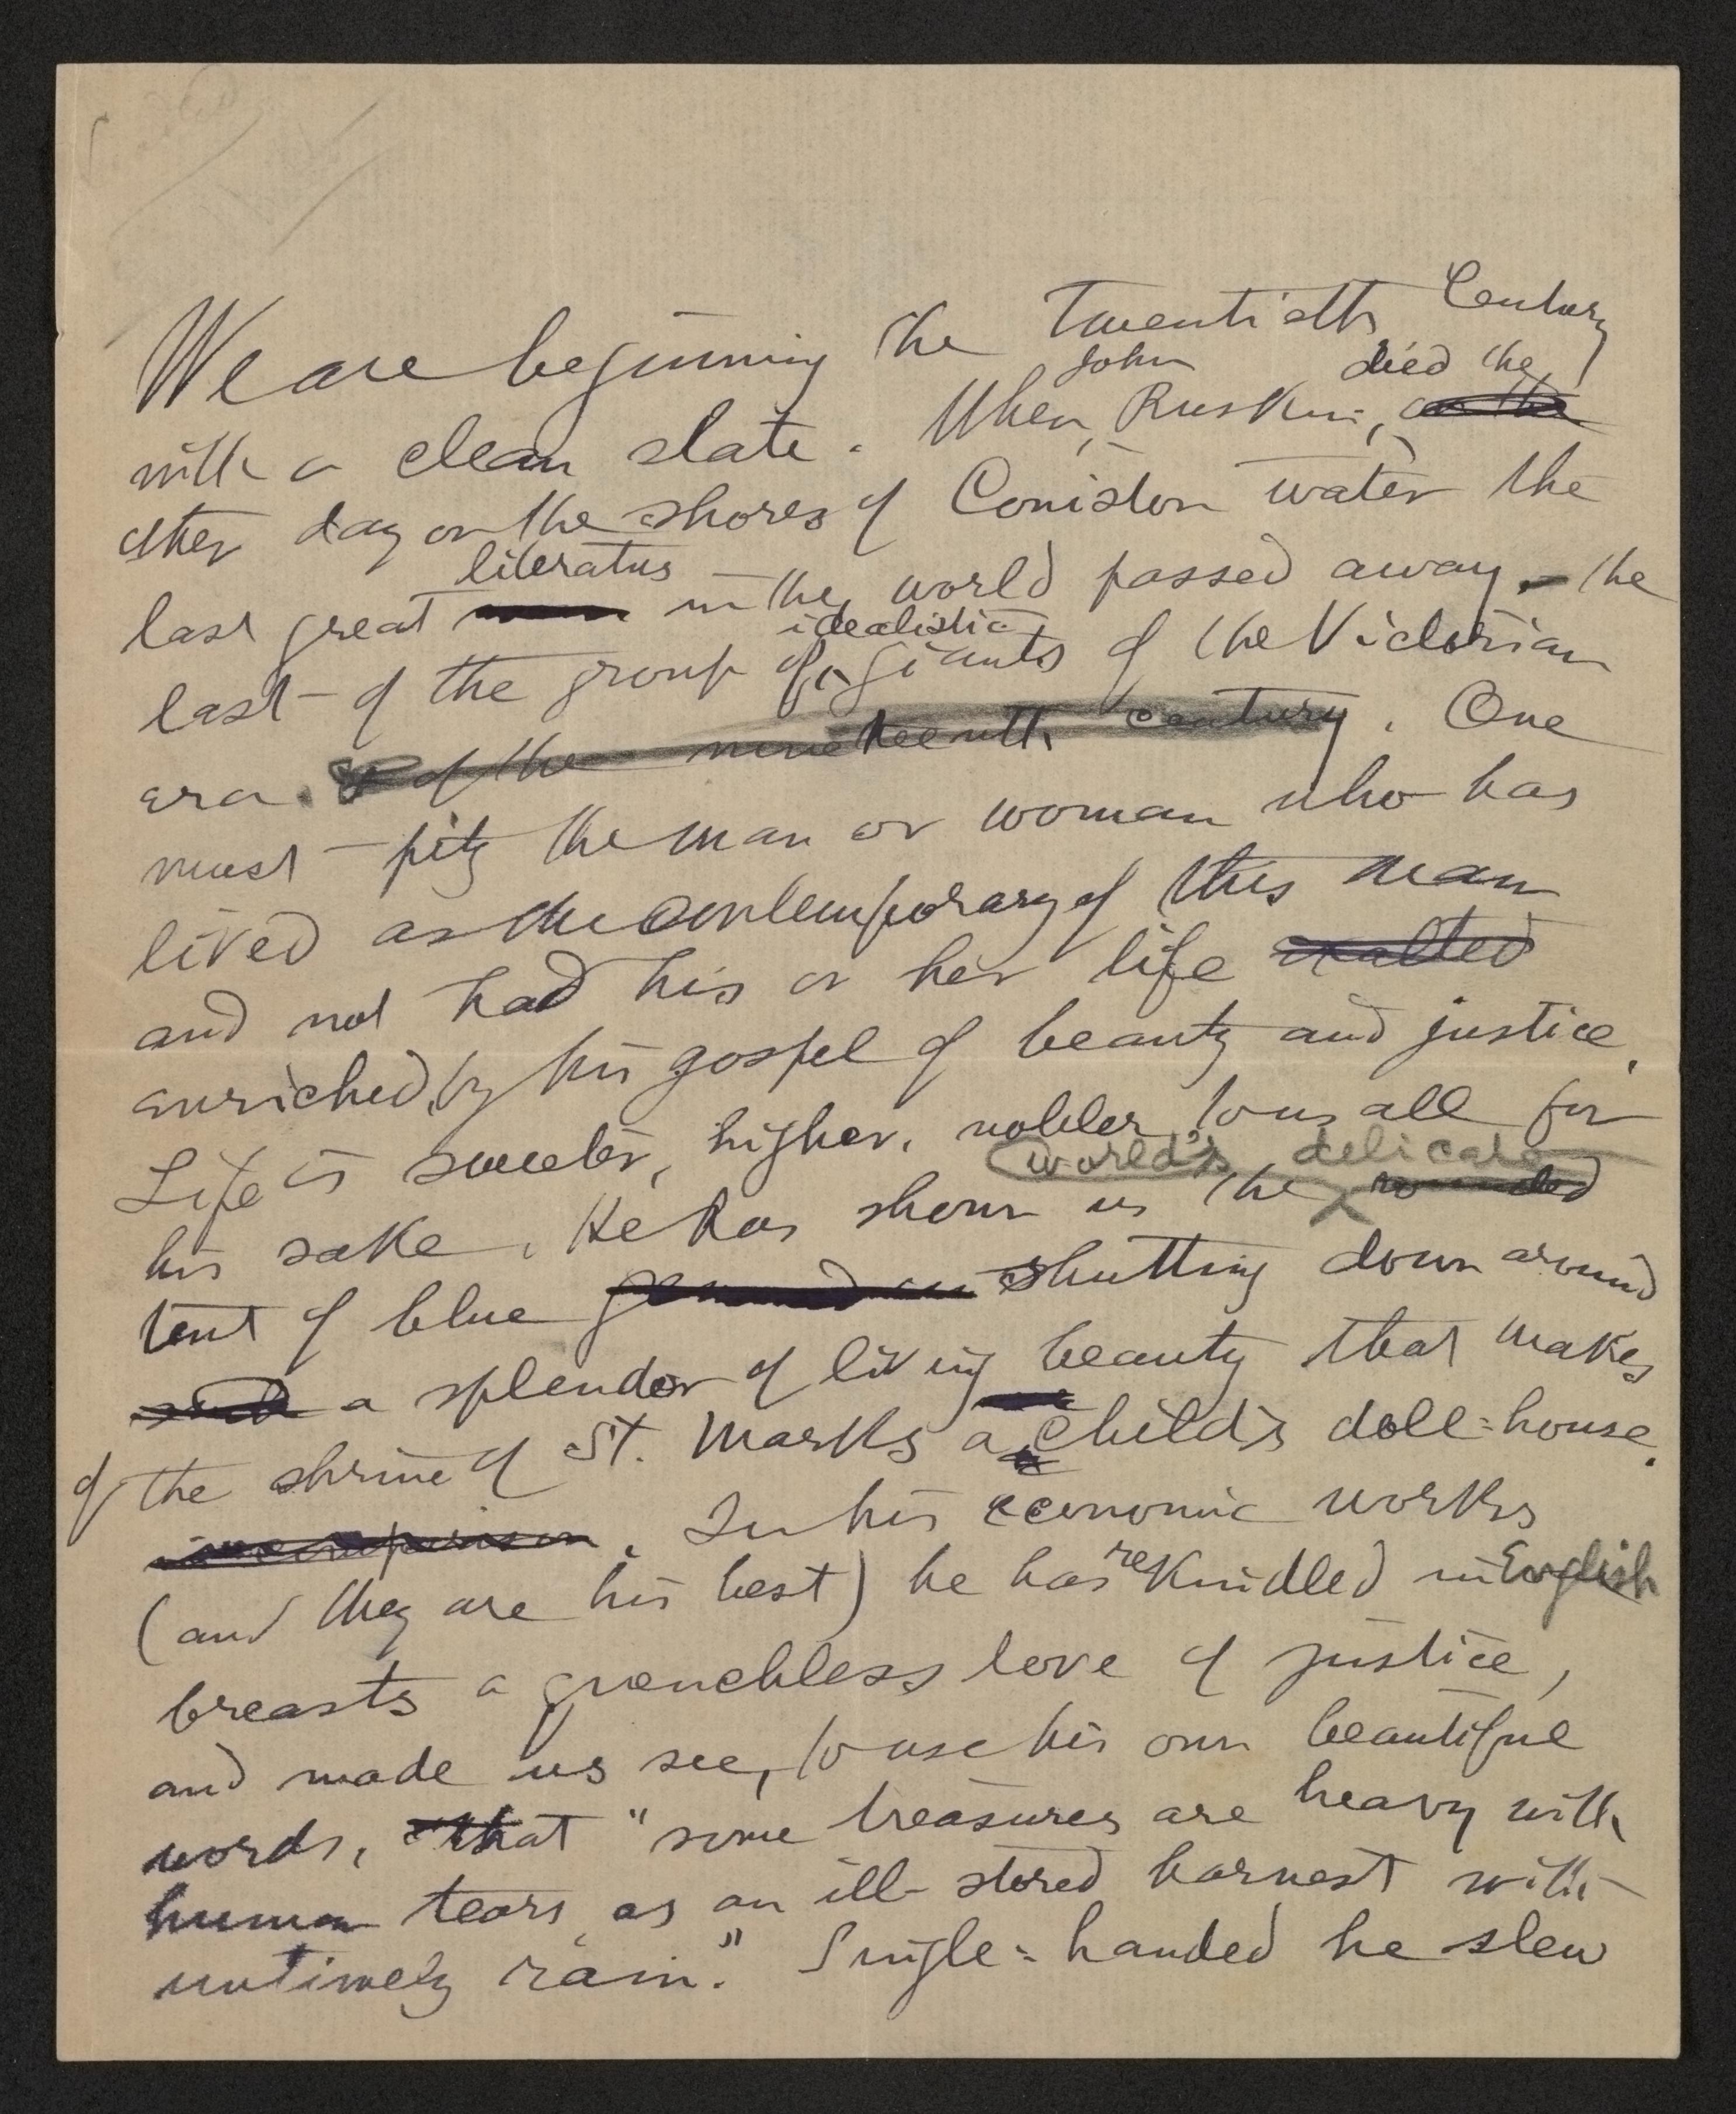 We are beginning the Twentieth Century
with a clean slate. When John Ruskin, died the on the
other day on the shores of Coniston water the
last great literatus in the world passed away, – the
last of the group of idealistic giants of the Victorian
era. of the nineteenth century. One
must pity the man or woman who has
lived as the contemporary of this man
and not had his or her life exalted
enriched by his gospel of beauty and justice.
Life is sweeter, higher, nobler to us all for
his sake. He has shown us the world's delicate rounded
tent of blue shutting down around
such a splendor of living beauty that makes
of the shrine of St. Marks a child's doll-house.
in comparison. In his economic works
(and they are his best) he has rekindled in English
breasts a quenchless love of justice,
and made us see, to use his own beautiful
words, that "some treasures are heavy with
human tears, as an ill-stored harvest with
untimely rain." Single-handed he slew